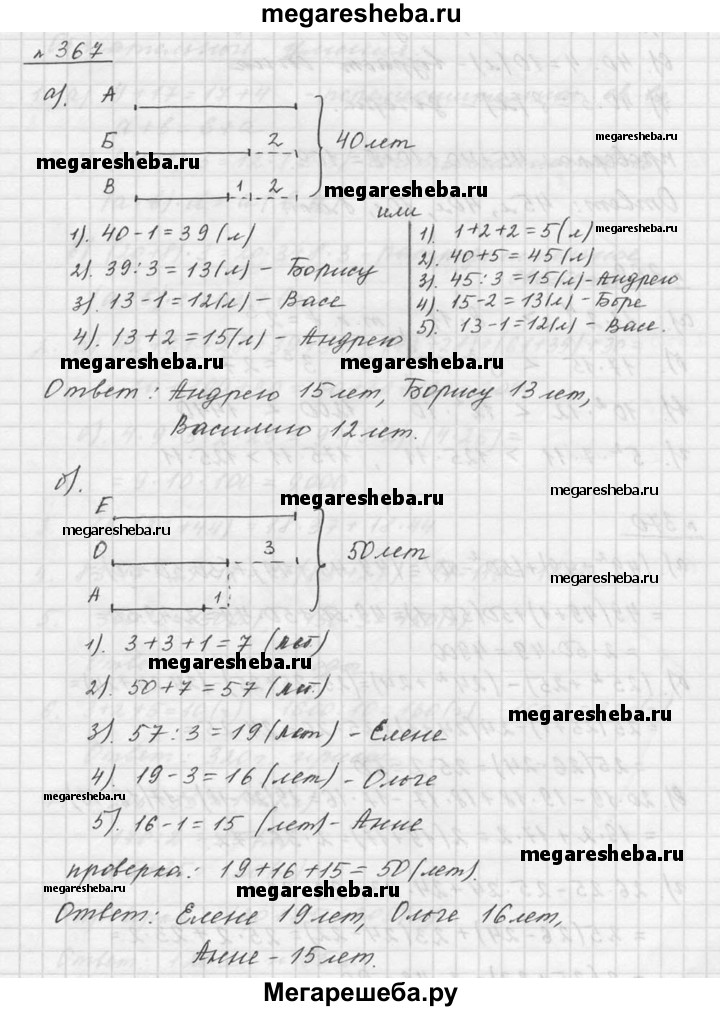 megaresheba.ru
№ 367
а). А
Б 2 40 лет
megaresheba.ru
megaresheba.ru
В 1 2
megaresheba.ru
или
1). 40-1=39(л)
2). 39:3=13(л) - Борису
3). 13-1=12(л) - Васе
4). 13+2=15(л) - Андрею
1). 1+2+2=5(л)
megaresheba.ru
2). 40+5=45(л)
3). 45:3=15(л) - Андрею
4). 15-2=13(л) - Боре
5). 13-1=12(л) - Васе.
megaresheba.ru megaresheba.ru
Ответ: Андрею 15 лет, Борису 13 лет,
Василию 12 лет.
б).
megaresheba.ru megaresheba.ru
Е
megaresheba.ru
О 3 50 лет
megaresheba.ru
А 1
1). 3+3+1=7 (лет)
megaresheba.ru
2). 50+7=57 (лет)
megaresheba.ru
3). 57:3=19 (лет) - Елене
4). 19-3=16 (лет) - Ольге
megaresheba.ru
5). 16-1=15 (лет) - Анне
megaresheba.ru
проверка: 19+16+15=50(лет).
megaresheba.ru megaresheba.ru megaresheba.ru
Ответ: Елене 19 лет, Ольге 16 лет,
Анне - 15 лет.
Мегарешеба.ру